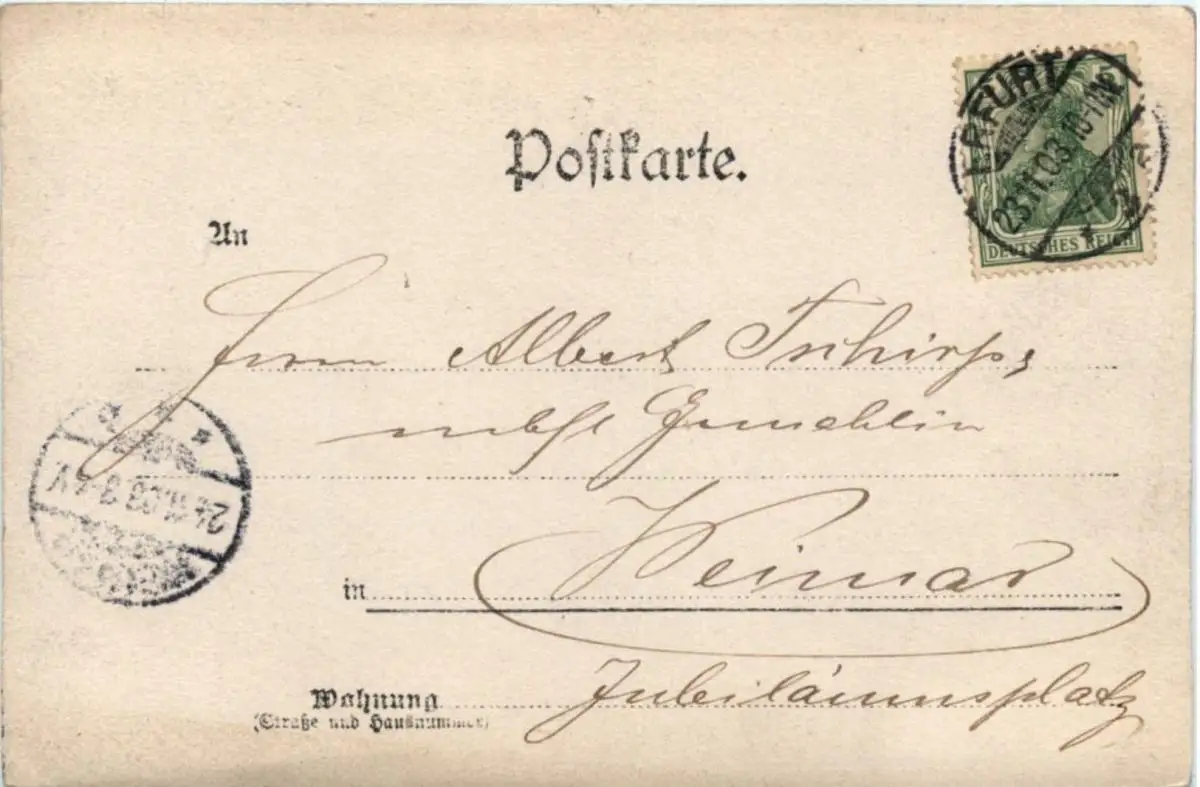 Postkarte.
5
DEUTSCHES REICH
ERFURT
23.11.03. 10-11N.
An
Herrn Albert Tschirps,
nebst Gemahlin
24.11.03. 3-4V
in Weimar
Wohnung Jubiläumsplatz
(Straße und Hausnummer)